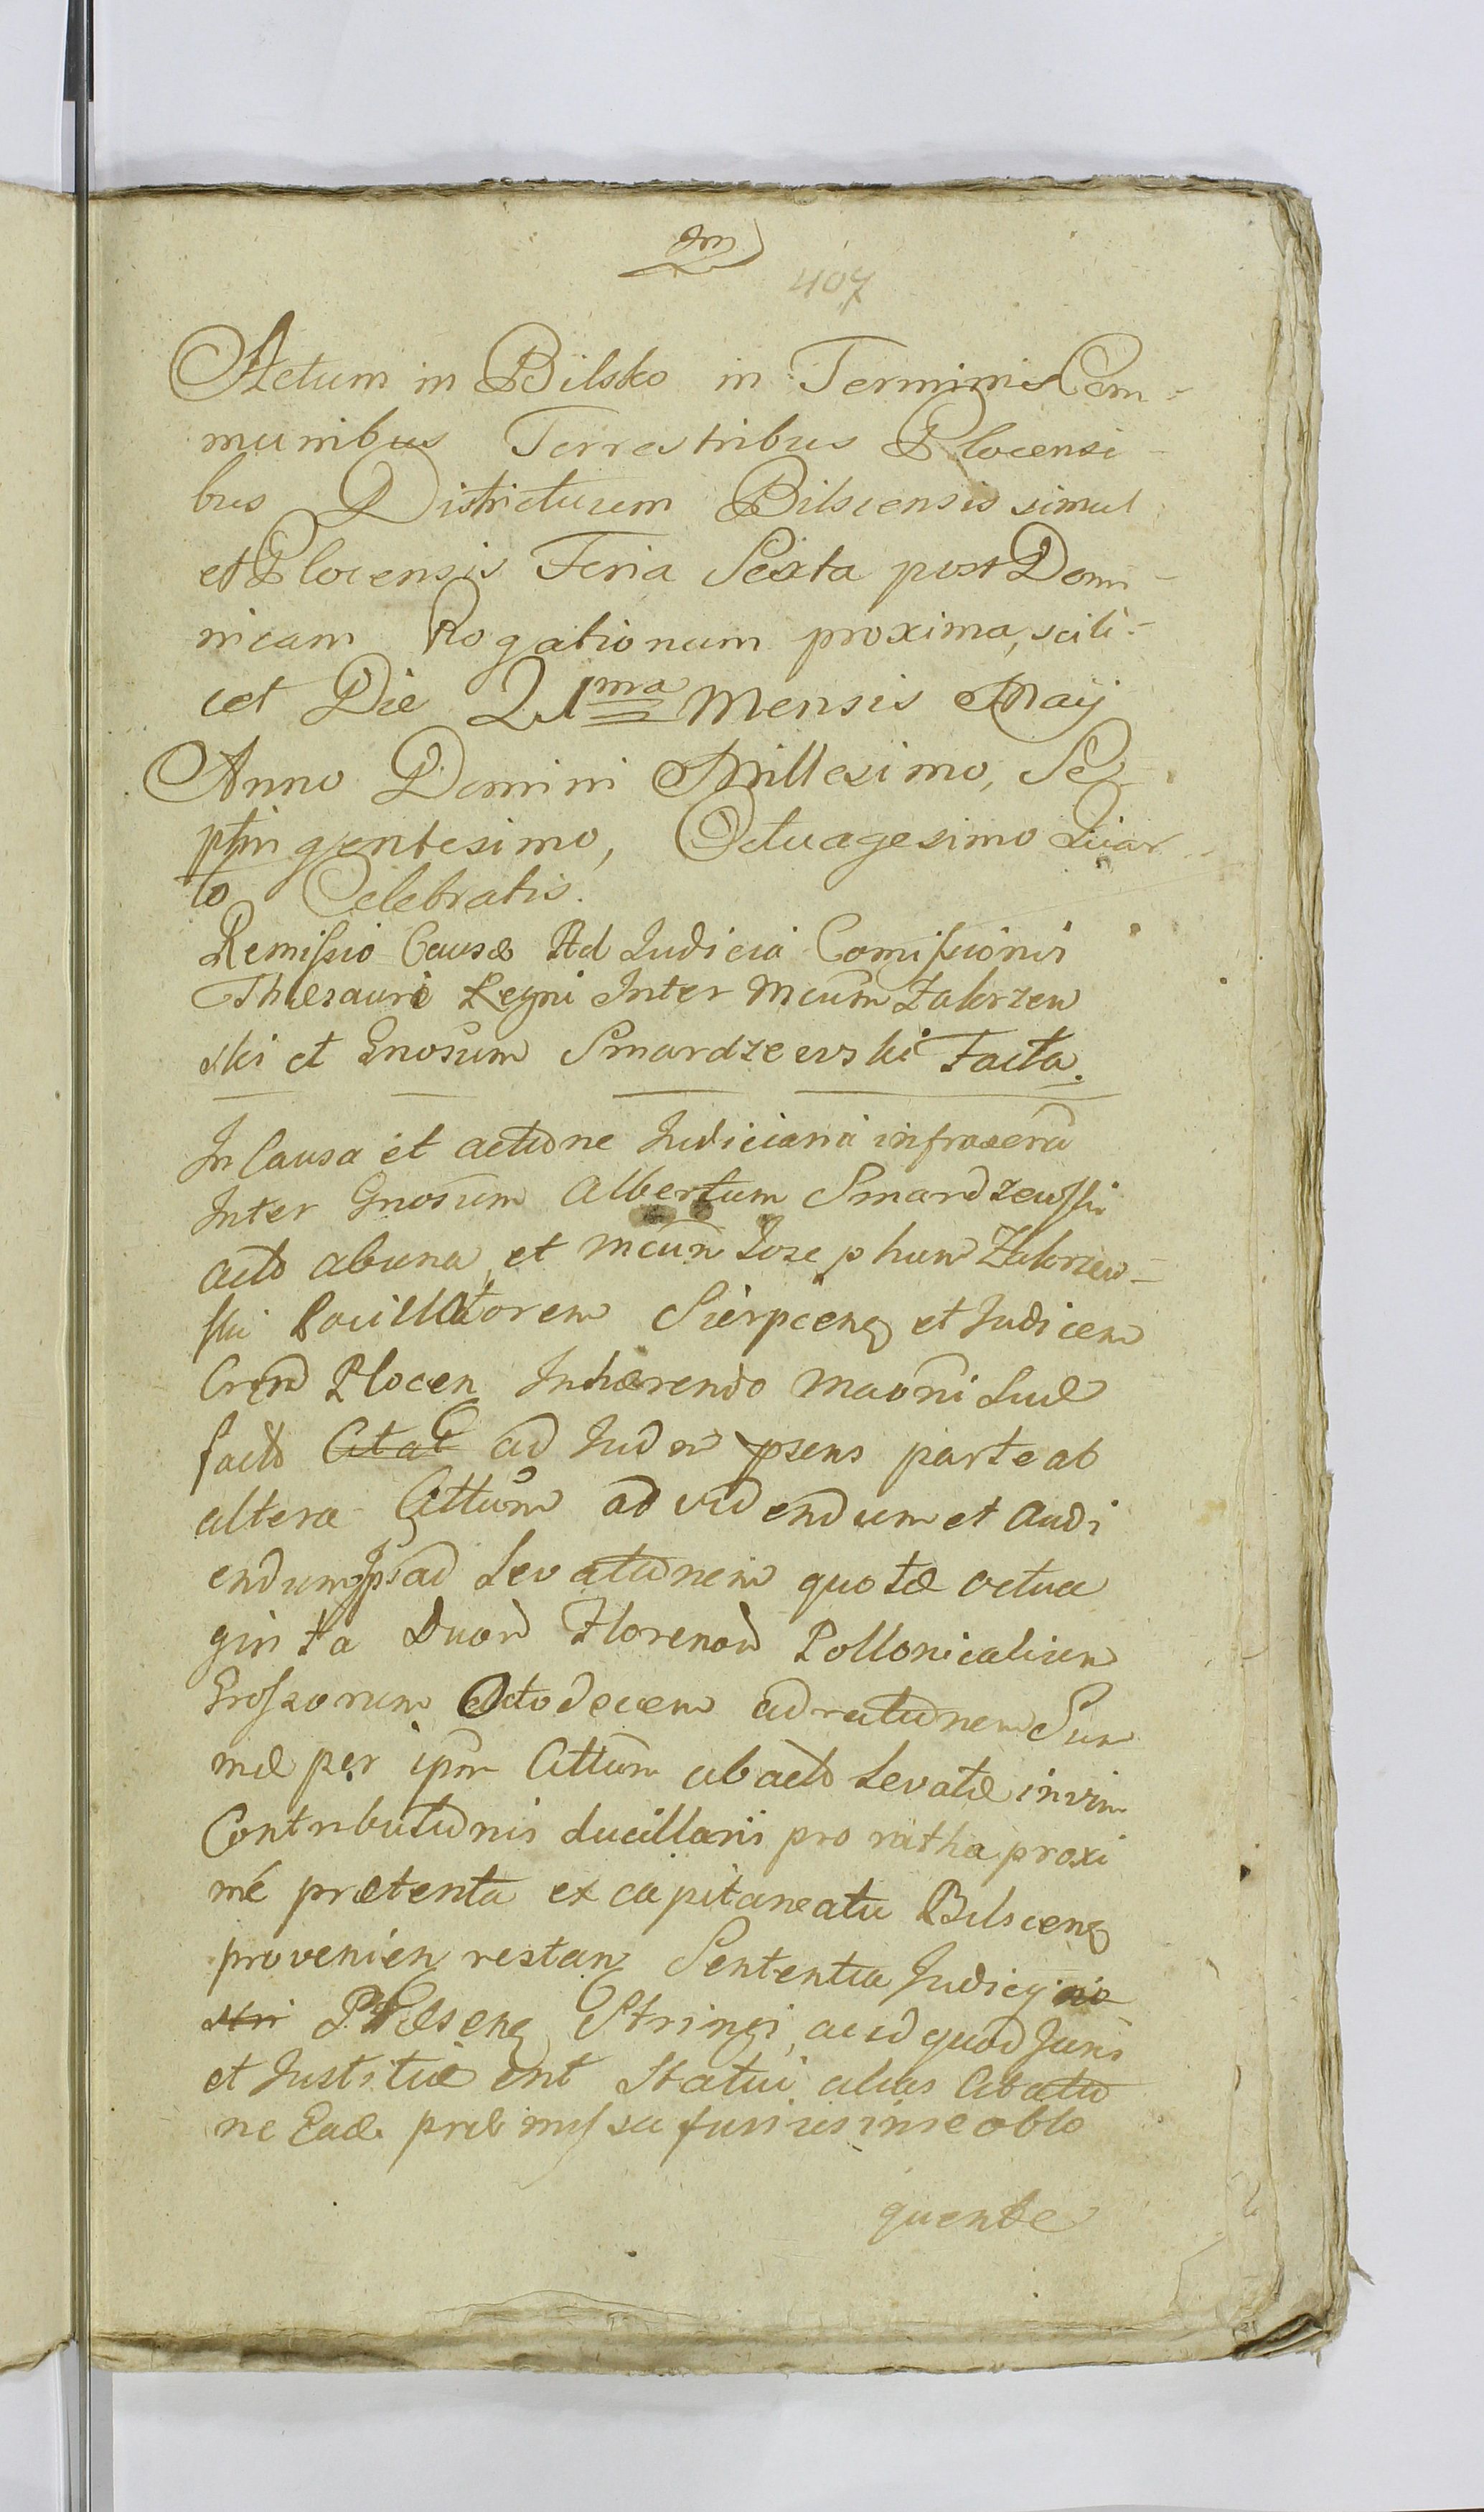 407
Actum in Bilsko in Terminis Com-
munibus Terrestribus Plocensi-
bus Districtuum Bilscensis simul
et Plocensis Feria Sexta post Domi-
nicam Rogationum proxima, scili-
cet Die 21ma Mensis Maij
Anno Domini Millesimo, Se-
ptingentesimo, Octuagesimo Quar-
to Celebratis.
Remissio Causæ Ad Judicia Comissionis
Thæsauri Regni Inter Mcum Zakrzew
ski et Gnosum Smardzewski Facta.
In Causa et actione Judiciaria infrascrá
Inter Gnosum Albertum Smardzewski
act͠o ab una, et Mcum Josephum Zakrzew-
ski Sierpcens et Judicem
Plocen Inhærendo
facto Citat ad psens parte ab
altera Cittum ad videndum et Audi
endum ad Levationem quotæ octua
ginta Duor Florenor Pollonicalium
Grossorum Octodecem ad rationem Sum
mæ per ipm Cittum ab acto Levatæ in vim
Contributionis ducillaris pro ratha proxi
mé prætenta ex capitaneatu Bilscens
provenien restan Sententia Judicij no
stri Præsens Stringi, ac id quod Juris
et Justitiæ erit Statui alias Citatio
ne Ead præmissa fusius in se oblo
quente